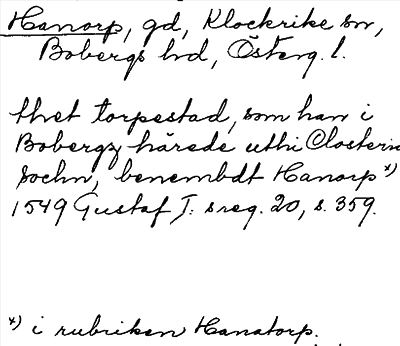 Hanorp, gd, Klockrike sn,
Bobergs hd, Österg. l.
thet torpestad, som han i
Bobergz härede uthi Closterin
sochn, benembdt Hanorp x)
1549 Gustaf I: s reg. 20, s. 359.
x) i rubriken Hanatorp.